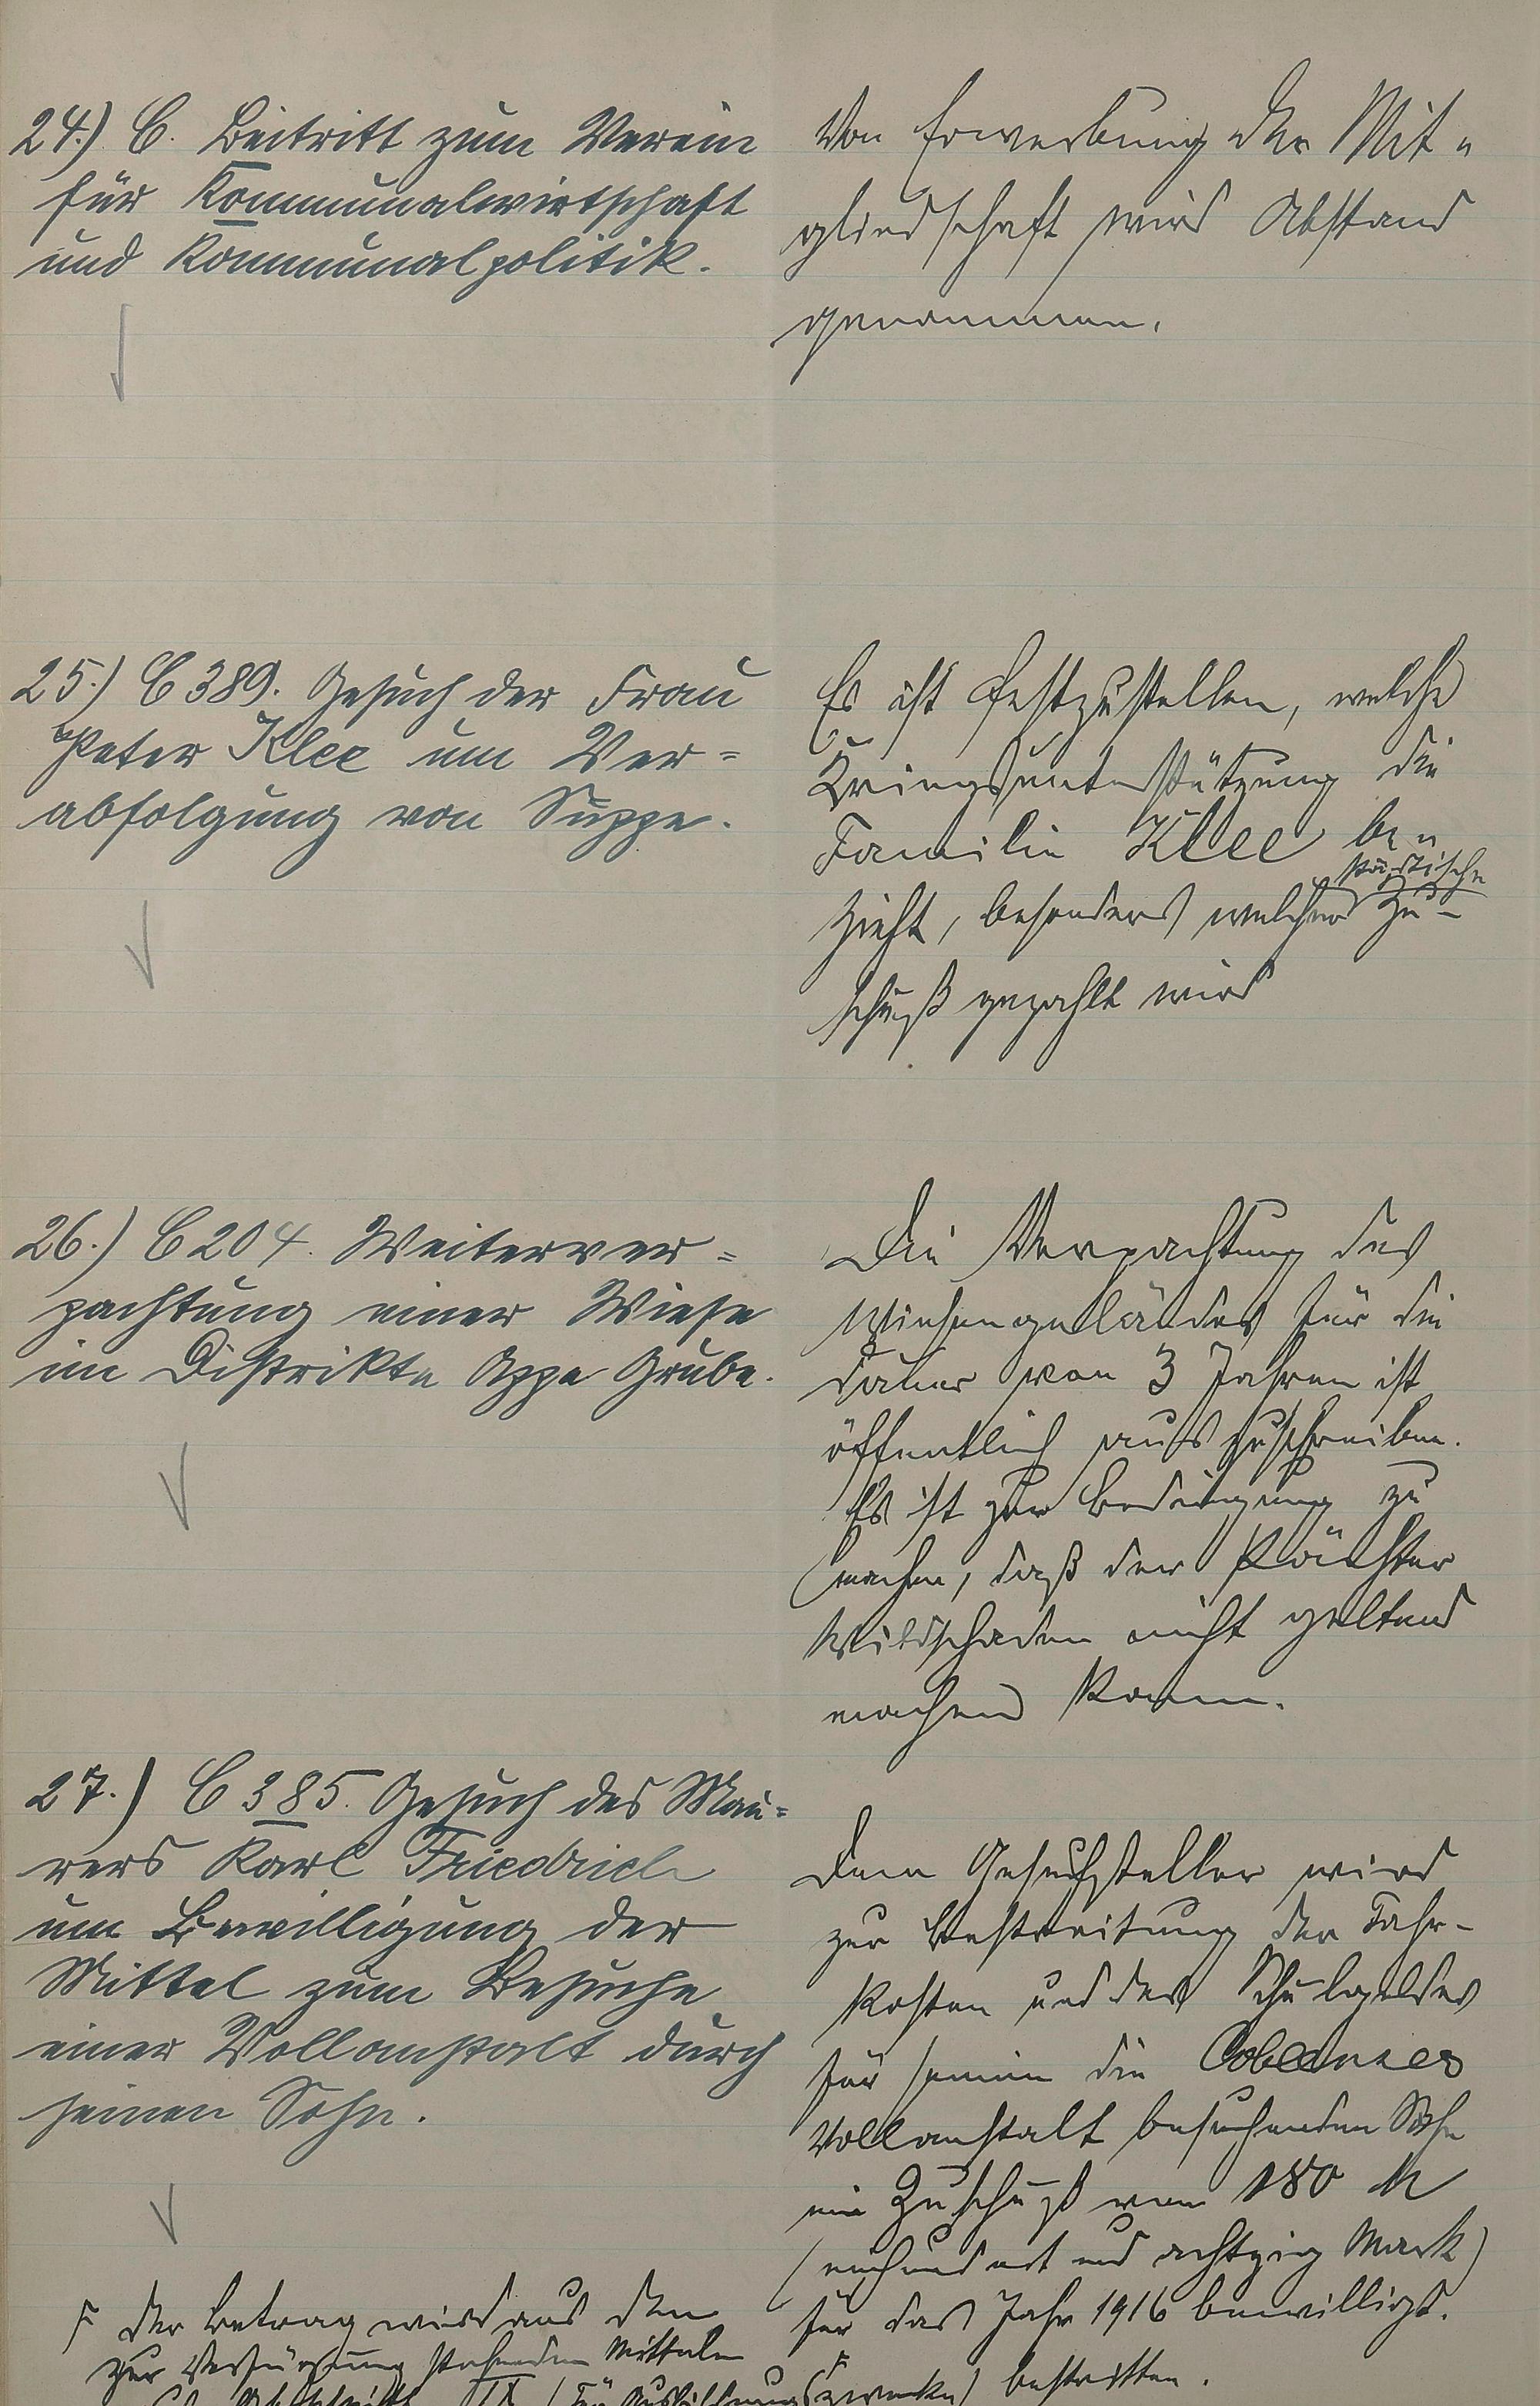 24.) C. Beitritt zum Verein
für Kommunalwirtschaft
und Kommunalpolitik.
Von Erwerbung der Mit-
gliedschaft wird Abstand
genommen.
25.) C 389. Gesuch der Frau
Peter Klee um Ver=
abfolgung von Suppe.
Es ist festzustellen, welche
Kriegsunterstützung die
Familie Klee be-
zieht, besonders welcher städtische Zu-
schuß gezahlt wird
26.) C 204. Weiterver=
pachtung einer Wiese
im Distrikte Appe Grube.
Die Verpachtung des
Wiesengeländes für die
Dauer von 3 Jahren ist
öffentlich auszuschreiben.
Es ist zur Bedingung zu
machen, daß der Pächter
Wildschaden nicht geltend
machen kann.
27.) C 385. Gesuch des Mau=
rers Karl Friedrich
um Bewilligung der
Mittel zum Besuche
einer Vollanstalt durch
seinen Sohn.
Dem Gesuchsteller wird
zur Bestreitung der Fahr-
kosten und des Schulgeldes
für seinen die Coblenzer
Vollanstalt besuchenden Sohn
ein Zuschuß von 180 M
(einhundert und achtzig Mark)
für das Jahr 1916 bewilligt.
F Der Betrag wird aus den
zur Verfügung stehenden Mitteln
Abschnitt IX (für Ausbildungszwecke) bestritten.